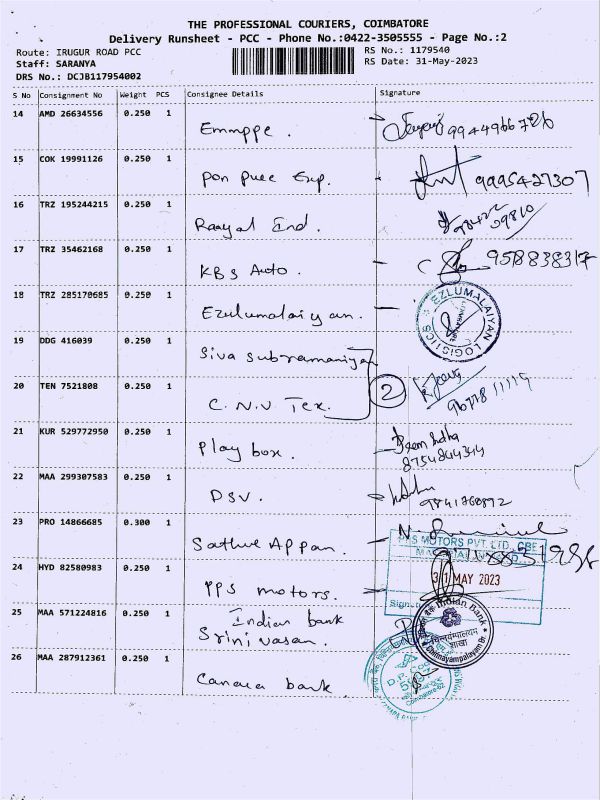 THE PROFESSIONAL COURIERS, COIMBATORE
Delivery Runsheet - PCC - Phone No.:0422-3505555 - Page No.:2
Route: IRUGUR ROAD PCC
RS No.: 1179540
Staff: SARANYA
RS Date: 31-May-2023
DRS No.: DCJB117954002
S No Consignment No Weight PCS Consignee Details Signature
14 AMD 26634556 0.250 1 Emmppe. 9944966726
15 COK 19991126 0.250 1 Pon Pure Exp. 9995427307
16 TRZ 195244215 0.250 1 Raayal Ind.
17 TRZ 35462168 0.250 1 KBS Auto. 9518838317
18 TRZ 285170685 0.250 1 Ezulumalaiyan.
EZLUMALAIYAN LOGISTICS
19 DDG 416039 0.250 1 Siva Subramaniyan
20 TEN 7521808 0.250 1 C.N.V Tex. 2
21 KUR 529772950 0.250 1 Play box. 8754844344
22 MAA 299307583 0.250 1 DSV. 9841760892
23 PRO 14866685 0.300 1 Sathve Appan.
PPS MOTORS PVT. LTD. CBE
24 HYD 82580983 0.250 1 PPS motors.
31 MAY 2023
25 MAA 571224816 0.250 1 Indian bank
Srinivasan.
Indian Bank
शाखा
Chinniyampalayam Br.
26 MAA 287912361 0.250 1 Canara bank.